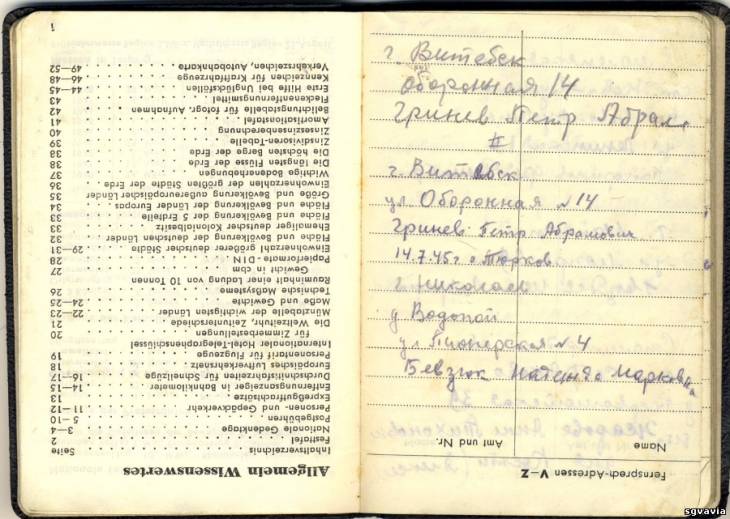 Allgemein Wissenswertes
Inhaltsverzeichnis Seite
Festtafel 2
Nationale Gedenktage 3—4
Postgebühren 5—10
Personen- und Gepäckverkehr 11—12
Expreßgutfrachtsätze 13
Entfernungsanzeiger in Bahnkilometer 14—15
Durchschnittsfrachten für Schnellzüge 16—17
Europäisches Luftverkehrsnetz 18
Personentarif für Flugzeuge 19
Internationaler Hotel-Telegraphenschlüssel
für Zimmerbestellungen 20
Die Weltzeituhr, Zeitunterschiede 21
Münztabelle der wichtigsten Länder 22—23
Maße und Gewichte 24—25
Technische Maßsysteme 26
Rauminhalt einer Ladung von 10 Tonnen
Gewicht in cbm 27
Papierformate - DIN 28
Einwohnerzahl größerer deutscher Städte 29—31
Fläche und Bevölkerung der deutschen Länder 32
Ehemaliger deutscher Kolonialbesitz 33
Fläche und Bevölkerung der 5 Erdteile 33
Fläche und Bevölkerung der Länder Europas 34
Größe und Bevölkerung außereuropäischer Länder 35
Einwohnerzahlen der größten Städte der Erde 36
Wichtige Bodenerhebungen 37
Die längsten Flüsse der Erde 38
Die höchsten Berge der Erde 38
Zinsdivisoren-Tabelle 39
Zinseszinsenberechnung 40
Amortisationstafel 41
Belichtungstabelle für fotogr. Aufnahmen 42
Fleckenentfernungsmittel 43
Erste Hilfe bei Unglücksfällen 44—45
Kennzeichen für Kraftfahrzeuge 46—48
Verkehrszeichen, Autobahnkarte 49—52
1
г. Витебск
Оборонная 14
Гринев Петр Абрам
II
г. Витебск
ул. Оборонная № 14
Гринев Петр Абрамович
14.7.45г. г. Тюрков
г. Николаев
д Водопой
ул. Пионерская № 4
Бевзюк Марковна
Fernsprech-Adressen V—Z
Name Amt und Nr.
sgvavia